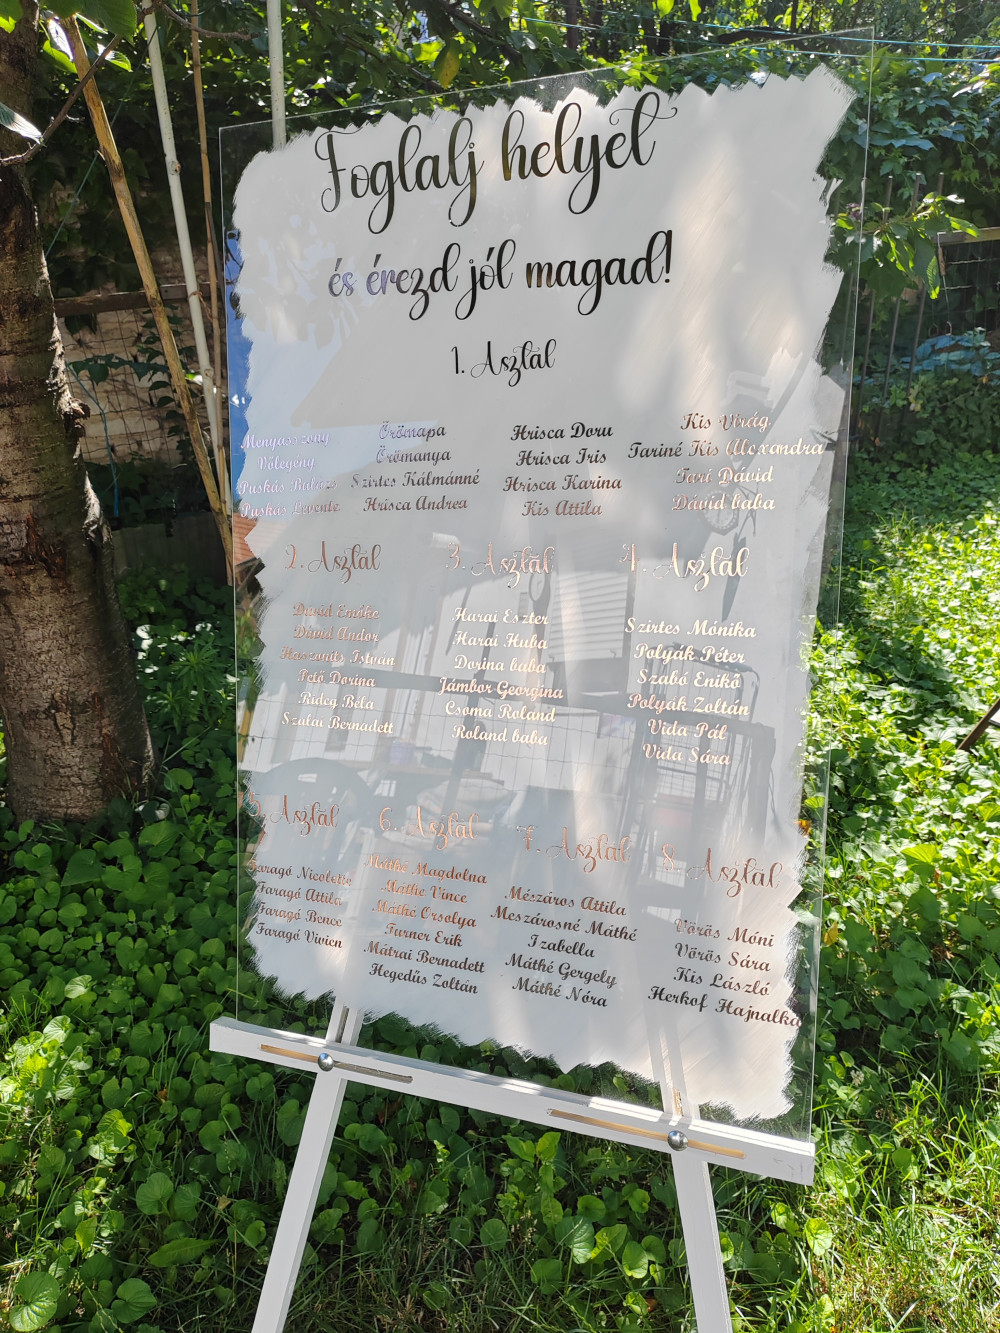 Foglalj helyet
és érezd jól magad!
1. Asztal
Menyasszony
Vőlegény
Puskás Balázs
Puskás Levente
Örömapa
Örömanya
Szirtes Kálmánné
Hrisca Andrea
Hrisca Doru
Hrisca Iris
Hrisca Karina
Kis Attila
Kis Virág
Tariné Kis Alexandra
Tari Dávid
Dávid baba
2. Asztal
Dávid Emőke
Dávid Andor
Haszonits István
Fető Dorina
Rideg Béla
Szalai Bernadett
3. Asztal
Harai Eszter
Harai Huba
Dorina baba
Jámbor Georgina
Csoma Roland
Roland baba
4. Asztal
Szirtes Mónika
Polyák Péter
Szabó Enikő
Polyák Zoltán
Vida Pál
Vida Sára
5. Asztal
Faragó Nicolette
Faragó Attila
Faragó Bence
Faragó Vivien
6. Asztal
Máthé Magdolna
Máthé Vince
Máthé Orsolya
Turner Erik
Mátrai Bernadett
Hegedűs Zoltán
7. Asztal
Mészáros Attila
Meszárosné Máthé
Izabella
Máthé Gergely
Máthé Nóra
8. Asztal
Vörös Móni
Vörös Sára
Kis László
Herkof Hajnalka